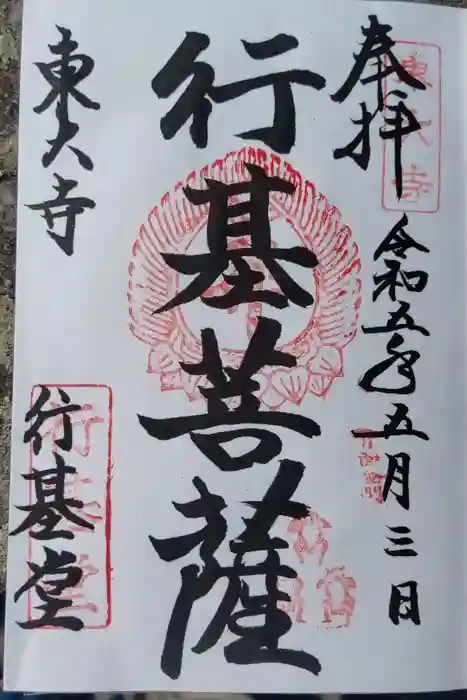 奉拝
令和五年五月三日
行基菩薩
東大寺
行基堂
東大寺
行基堂